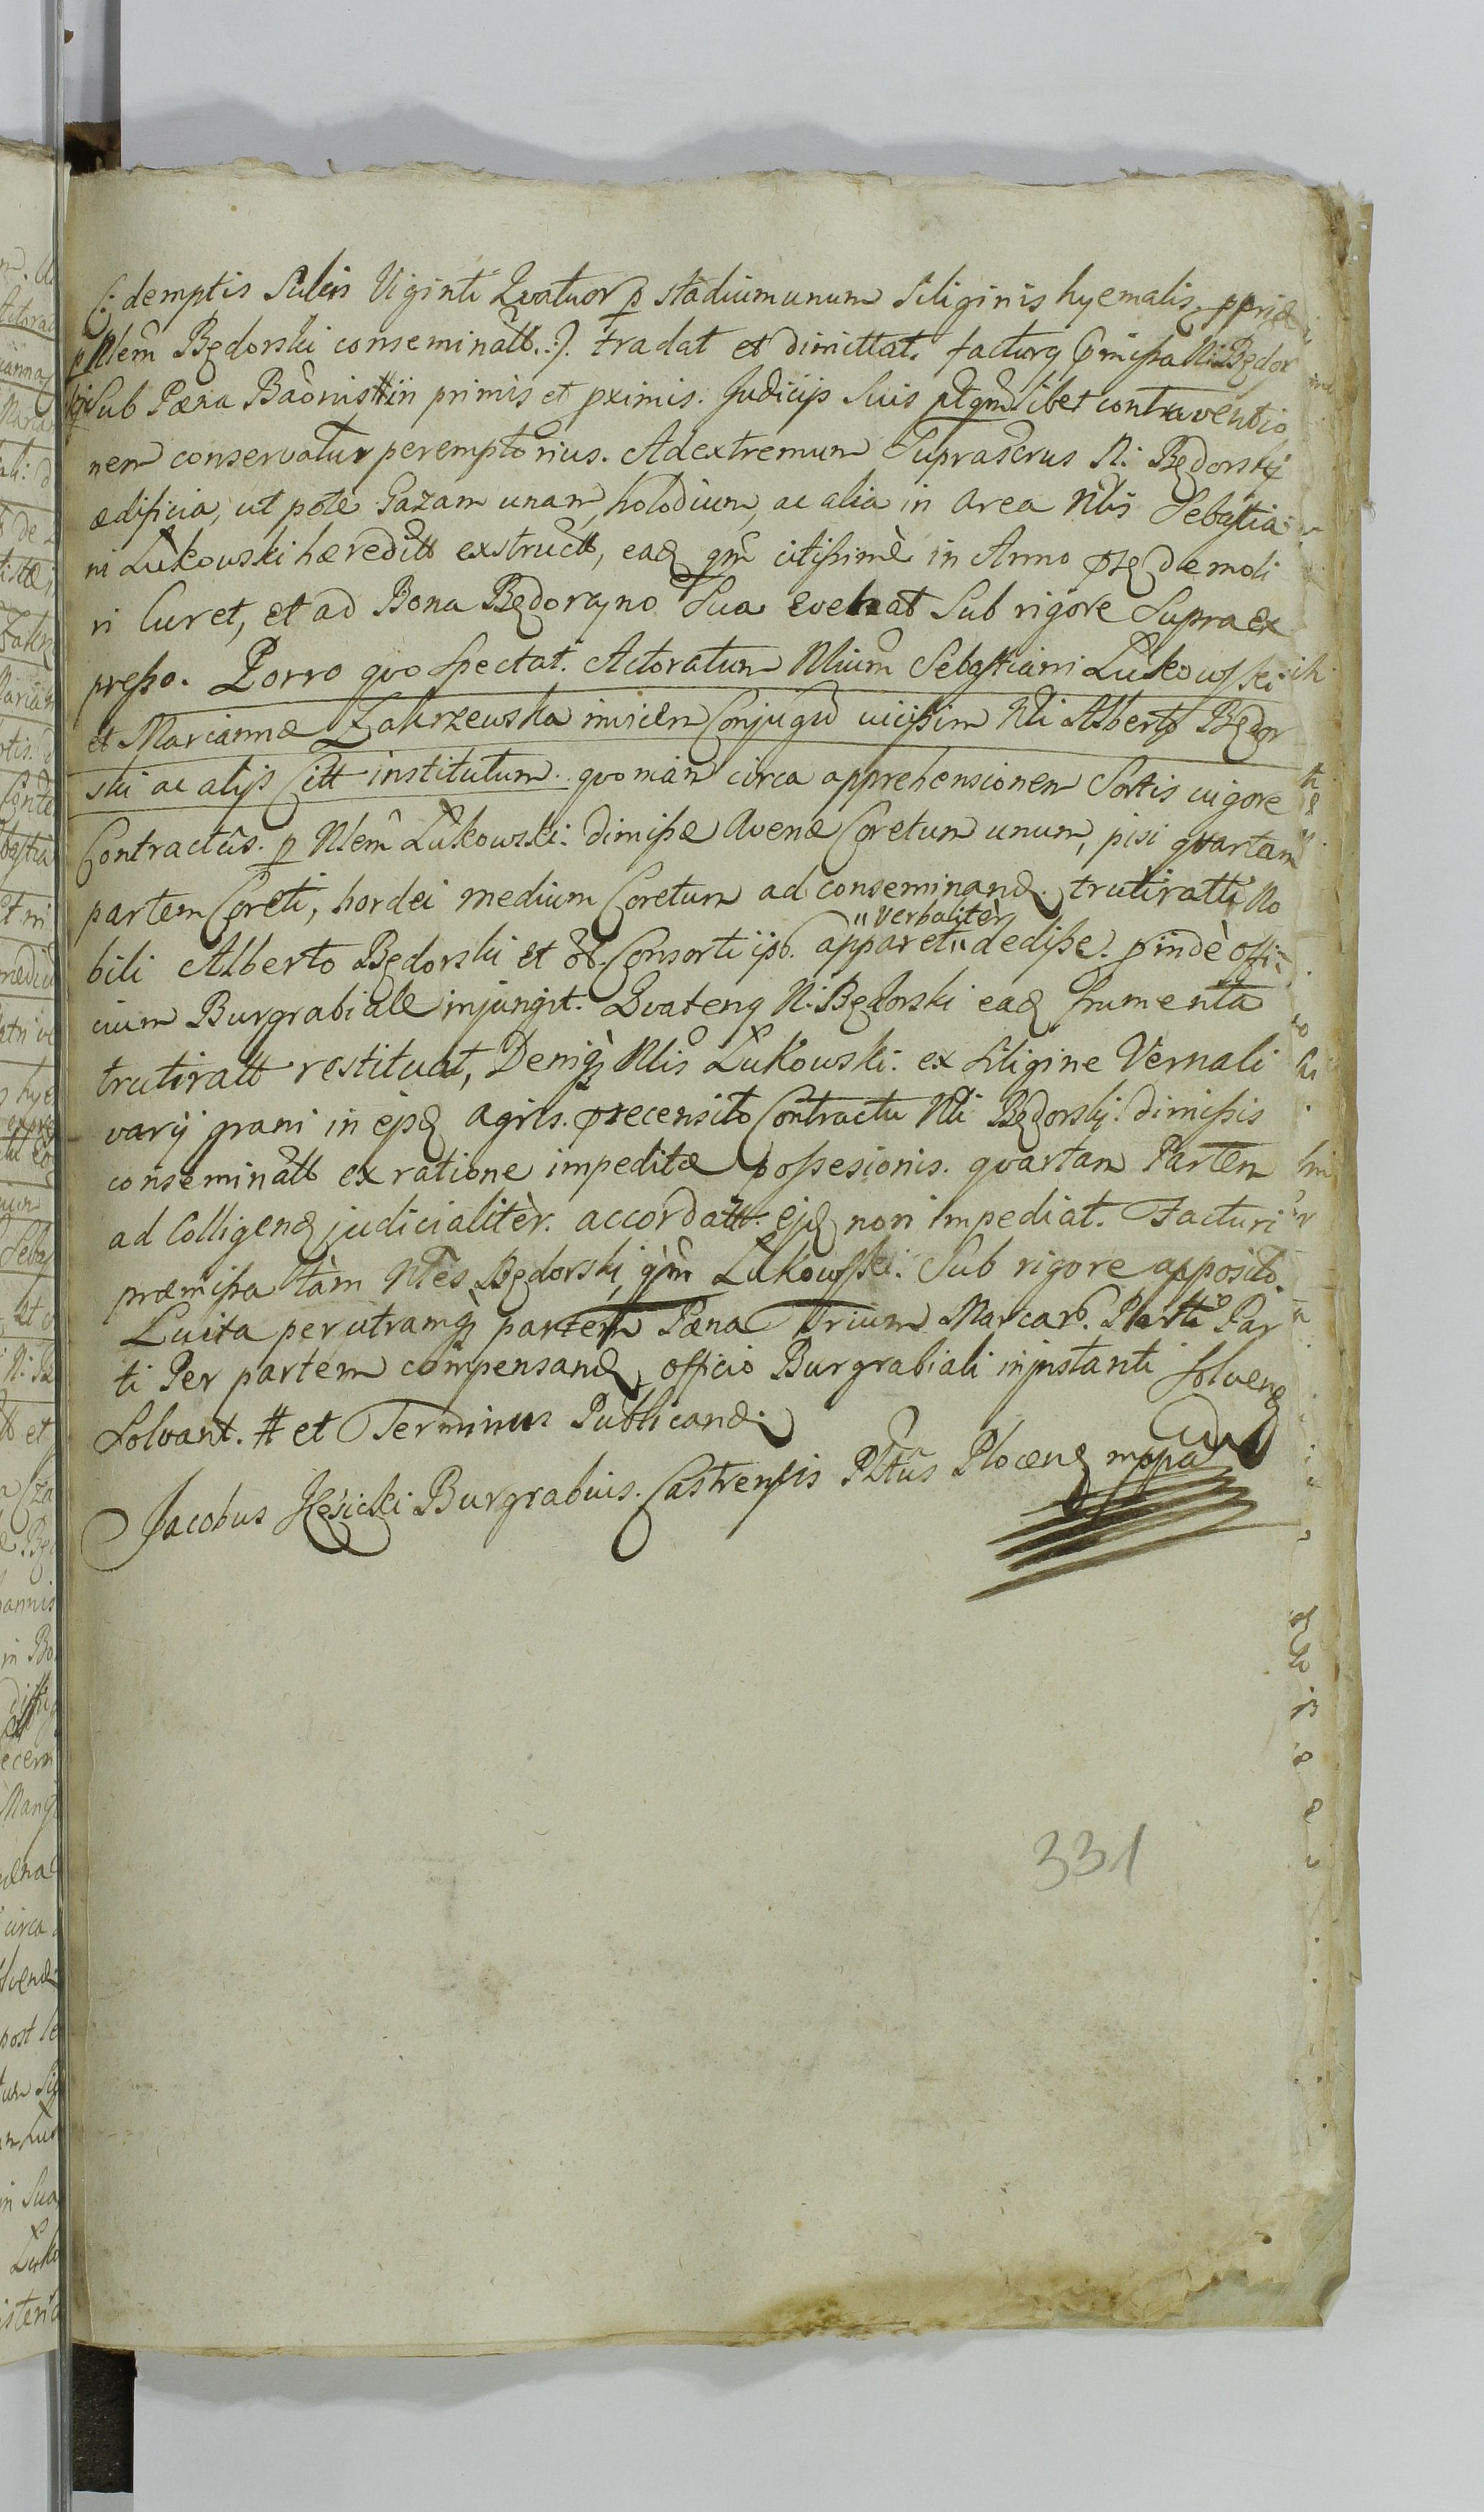 (: demptis Sulcis Viginti Qvatuor p stadium unum Siliginis hyemalis, pprie
p Nlem Będorski conseminatt. :) tradat et dimittat. facturq pmissa N: Będor
ski Sub Pæna Baonis # in primis et pximis. Judicijs Suis ptqmlibet contraventio
nem conservatur peremptorius. Ad extremum Suprascrus N: Będorskj
ædificia, ut pote Gazam unam, holodium, ac alia in area Nlis Sebastia:
ni Łukowski hæreditt exstructt, eaq qm citissimè in Anno præq demoli
ri Curet, et ad Bona Będorzyno Sua evehat Sub rigore Supra ex
presso. Porro qvo Spectat. Actoratum Nlium Sebastiani Łukowski
et Mariannæ Zakrzewska invicem Conjugu vicissim Nli Alberto Będor
ski ac alijs Citt institutum. qvoniam circa apprehensionem Sortis vigore
Contractus. p Nlem Łukowski. dimissæ Avenæ Coretum unum, pisi qvartam
partem Coreti, hordei medium Coretum ad conseminand. trutiratti No
"Verbalitèr
bili Alberto Będorski et ol. Consorti ipo. apparet" dedisse. pindè offi:
cium Burgrabiale injungit. Qvateng N: Będorski eaq frumenta
trutiratt restituat, Deniqꝫ Nlis Łukowski. ex Siligine Vernali
varij grani in ejsq agris. præcensito Contractu Nli Będorskj. dimissis
conseminatt ex ratione impeditæ possesionis. qvartam Partem
ad Colligend judicialitèr. accordatt. ejq non impediat. Facturi
præmissa tàm Nles Będorski, qm Łukowski. Sub rigore apposito.
Luita per utramqꝫ partem Pæna Trium Marcar. Parte Par
ti Per partem compensand, officio Burgrabiali injnstanti Solvend
Solvant. # et Terminus Publicand.
Jacobus Burgrabius. Castrensis Pltus Plocens mppa
331